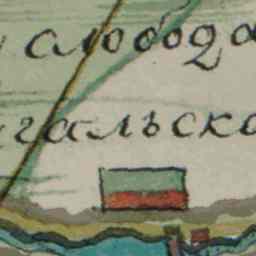 слобода
гальско